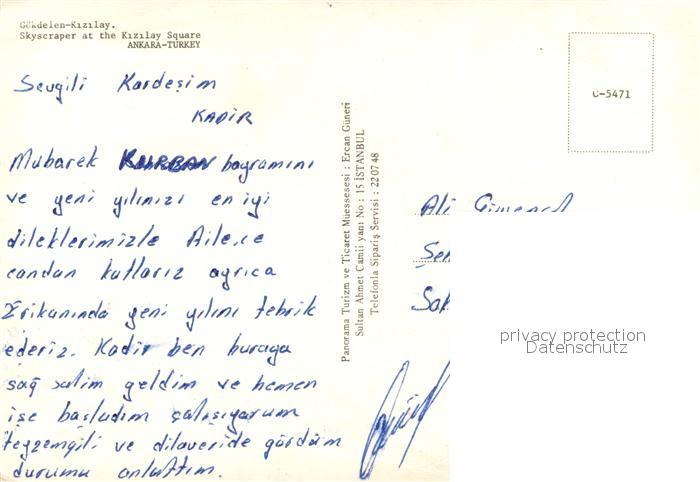 Gökdelen-Kızılay.
Skyscraper at the Kızılay Square
ANKARA-TURKEY
Sevgili Kardeşim
KADİR
Mubarek KURBAN bayramını
ve yeni yılınızı en iyi
dileklerimizle Ailece
candan kutlarız ayrıca
Erikanında yeni yılını tebrik
ederiz. Kadir ben buraya
sağ salim geldim ve hemen
işe başladım çalışıyorum
teyzemgili ve dilaveride gördüm
durumu anlattım.
Panorama Turizm ve Ticaret Müessesesi : Ercan Güneri
Sultan Ahmet Camii yanı No : 15 İSTANBUL
Telefonla Sipariş Servisi : 22 07 48
C-5471
Ali
privacy protection
Datenschutz